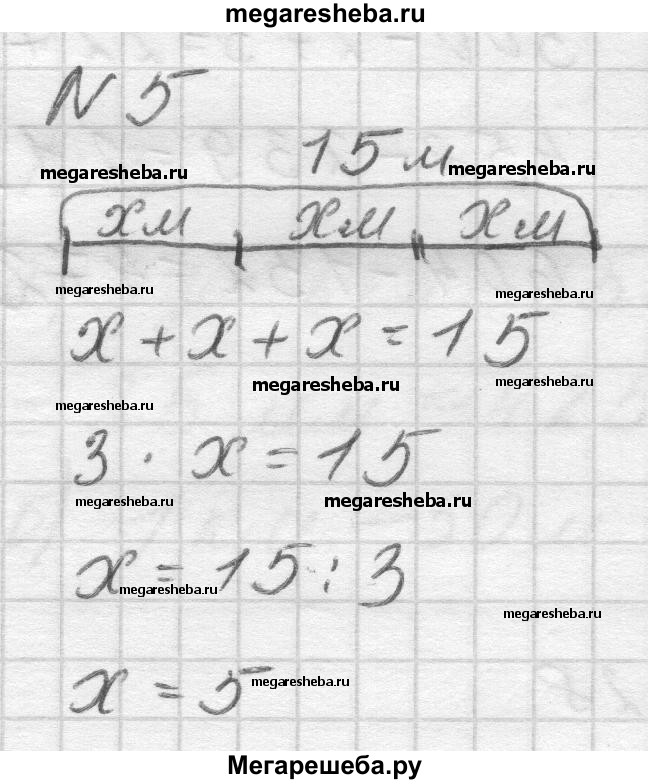 megaresheba.ru
N 5
15 м
megaresheba.ru megaresheba.ru
х м х м х м
megaresheba.ru megaresheba.ru
х + х + х = 15
megaresheba.ru megaresheba.ru
megaresheba.ru
3 · х = 15
megaresheba.ru megaresheba.ru
х = 15 : 3
megaresheba.ru
megaresheba.ru
х = 5
megaresheba.ru
Мегарешеба.ру